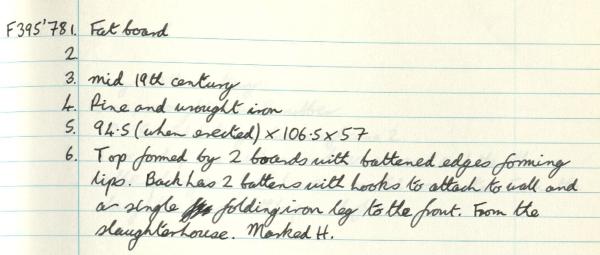 F395'78 1. Fat board
2
3. mid 19th century
4. Pine and wrought iron
5. 94.5 (when erected) × 106.5 × 57
6. Top formed by 2 boards with battened edges forming
lips. Back has 2 battens with hooks to attach to wall and
a single folding iron leg to the front. From the
slaughterhouse. Marked H.